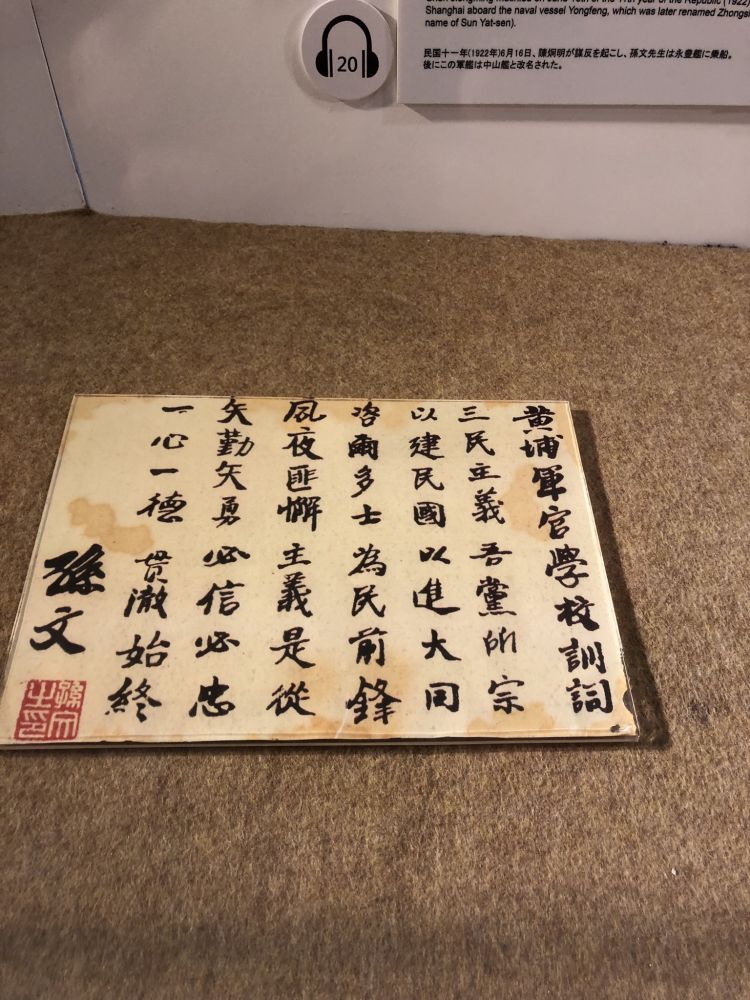 Jiongming mutinied on June 16th of the 11th year of the Republic (1922)
Shanghai aboard the naval vessel Yongfeng, which was later renamed
name of Sun Yat-sen).
民国十一年(1922年)6月16日、陳炯明が謀反を起こし、孫文先生は永豊艦に乗船。
後にこの軍艦は中山艦と改名された。
20
黄埔軍官學校訓詞
三民主義 吾黨所宗
以建民國 以進大同
咨爾多士 為民前鋒
夙夜匪懈 主義是從
矢勤矢勇 必信必忠
一心一德 貫澈始終
孫文
孫文之印